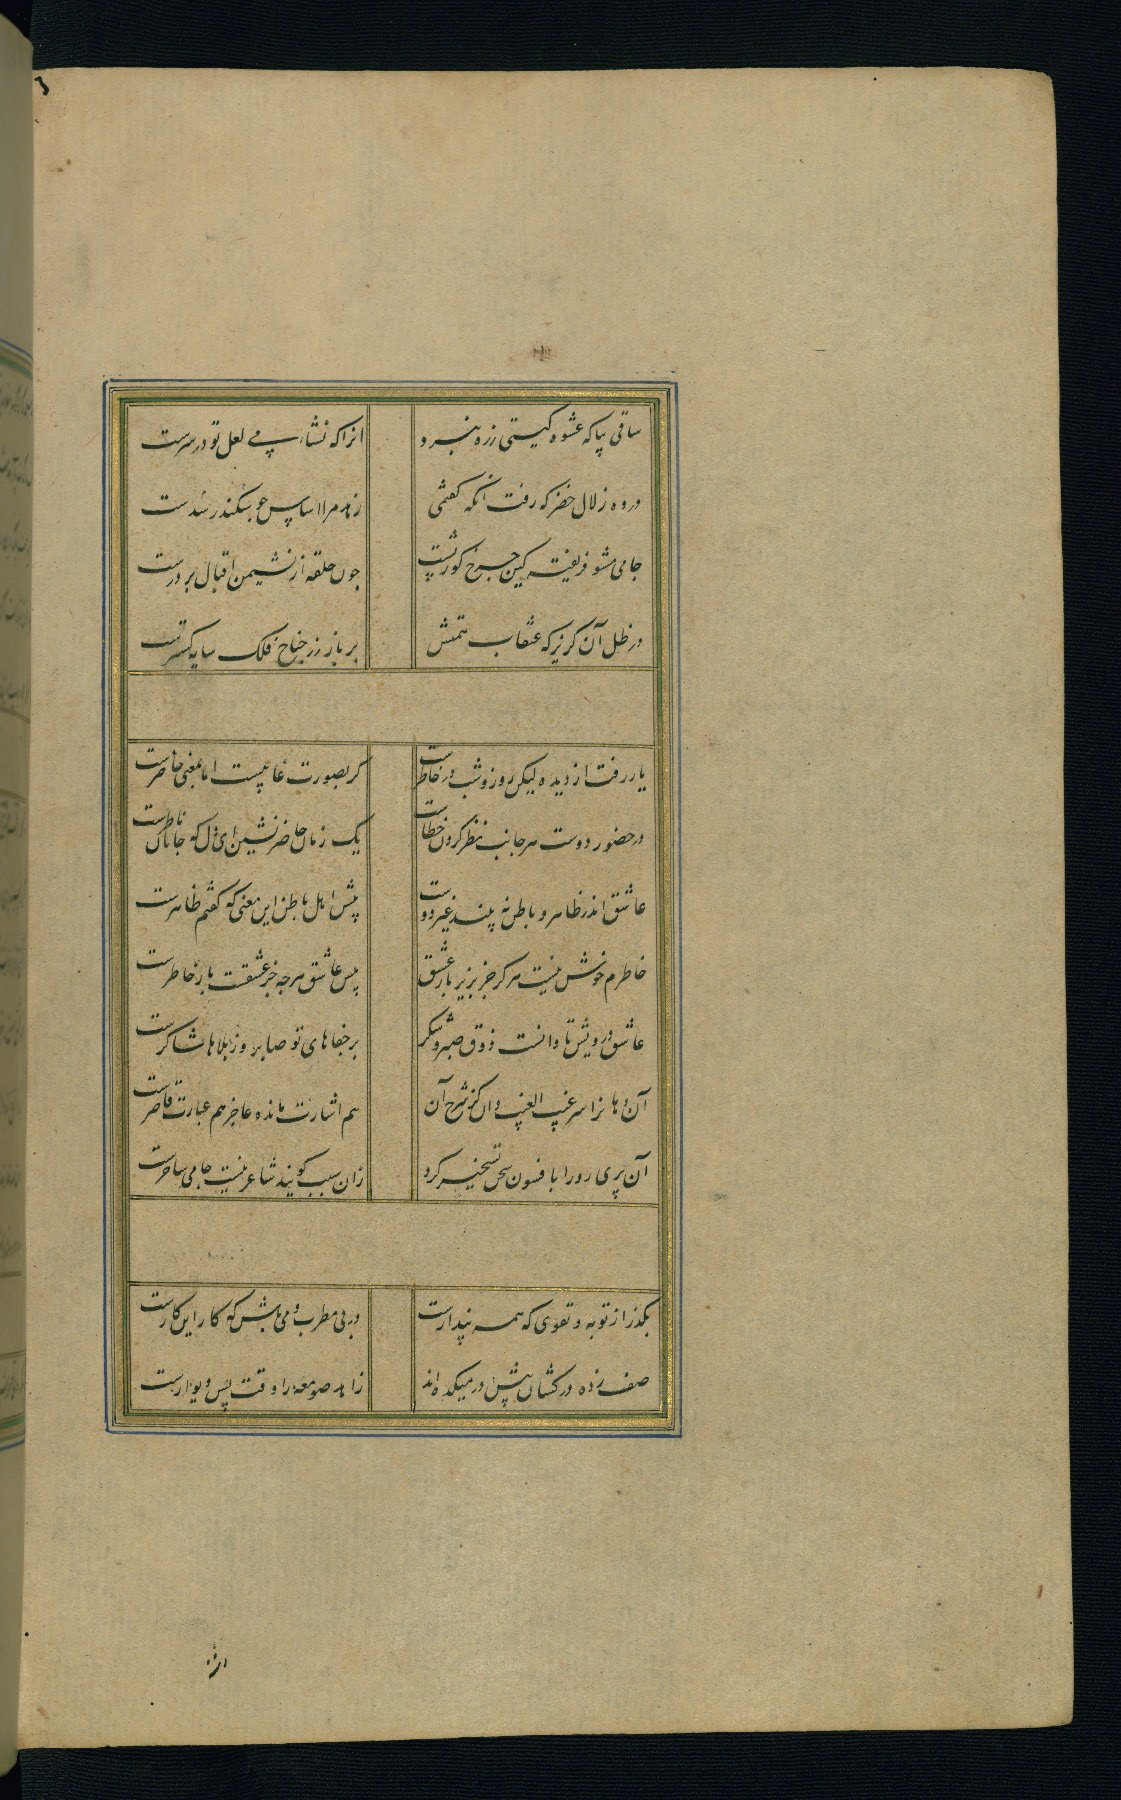 ساقی بیا که عشوه گیتی زره نبرد
انرا که نشاء می لعل تو در سرست
در وه زلال خضر که رفت آنکه گفتمی
زاهد مرا اساس چو سکندر شدست
جامی مشو فریفته کین چرخ کوژپشت
چون حلقه از نشیمن اقبال بر درست
در ظل آن گریز که عقاب همتش
بر باز زر جناح فلک سایه گسترست
یار رفت از دیده لیکن روز و شب در خاطرست
گر بصورت غایبست اما بمعنی حاضرست
در حضور دوست هر جانب نظر کردن خطاست
یک زمان حاضر نشین ای دل که جانان ناظرست
عاشق اندر ظاهر و باطن نه بیند غیر دوست
پیش اهل باطن این معنی که گفتم ظاهرست
خاطرم خوش نیست هرگز جز بزیر بار عشق
پیش عاشق هرچه جز عشقست بار خاطرست
عاشق درویش تا دانست ذوق صبر و شکر
بر جفاهای تو صابر وز بلاها شاکرست
آن دهانرا سر غیب الغیب دان کز شرح آن
هم اشارت مانده عاجز هم عبارت قاصرست
آن پری رو را بافسون سخن تسخیر کرد
زان سبب گویند شاعر نیست جامی ساحرست
بگذر از توبه و تقوی که همه پندارست
در پی مطرب و می باش که کار این کارست
صف زده دردکشان پیش در میکده‌اند
زاهد صومعه را وقت پس دیوارست